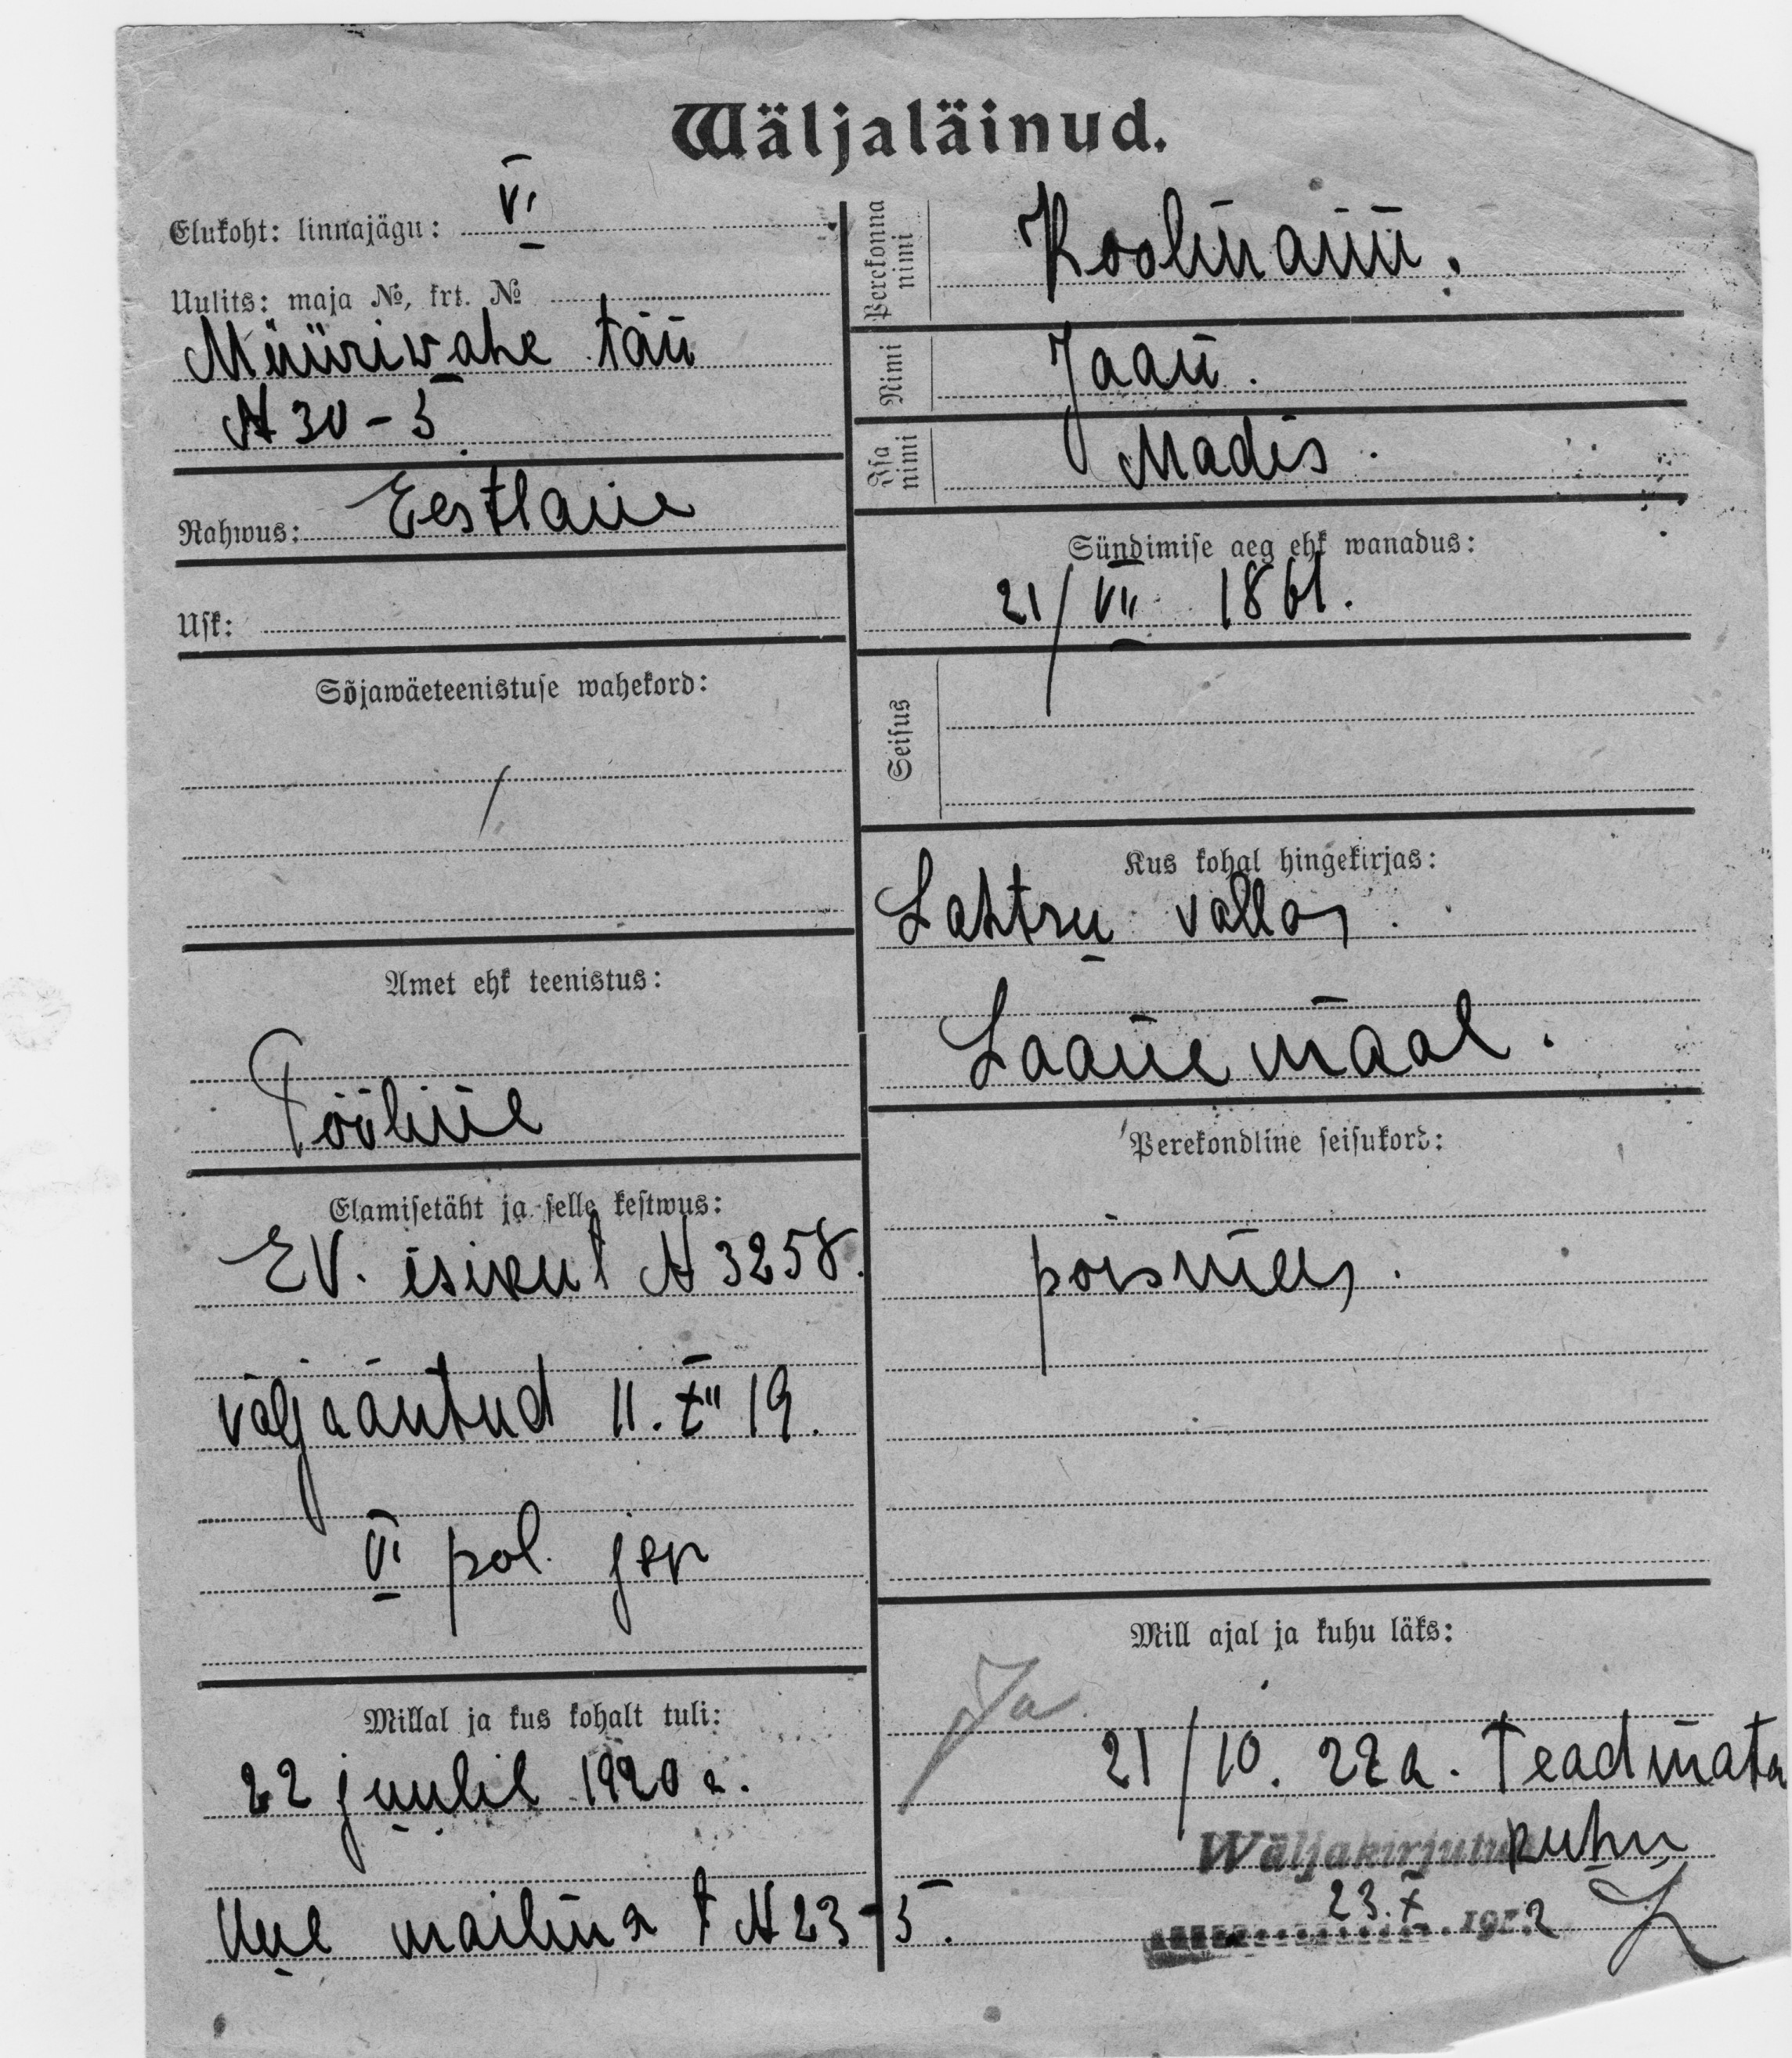 Wäljaläinud.
Elukoht: linnajägu: VI
Uulits: maja №, krt. №
Müüriwahe tän
№ 30 - 5
Rahwus: Eestlane
Usk:
Sõjawäeteenistuse wahekord:
Amet ehk teenistus:
Tööline
Elamisetäht ja selle kestwus:
EV. isikut № 3258.
väljaantud 11. XII 19.
VI pol. jsk
Millal ja kus kohalt tuli:
22 juulil 1920 a.
Uue mailma t № 23 - 5.
Perekonna nimi
Koolmann.
Nimi
Jaan.
Isa nimi
Madis.
Sündimise aeg ehk wanadus:
21/VII 1861.
Seisus
Kus kohal hingekirjas:
Lahtru vallas.
Läänemaal.
Perekondline seisukord:
poismees.
Mill ajal ja kuhu läks:
Ja
21/10. 22 a. Teadmata
kuhu
Wäljakirjutud
23.X 1922